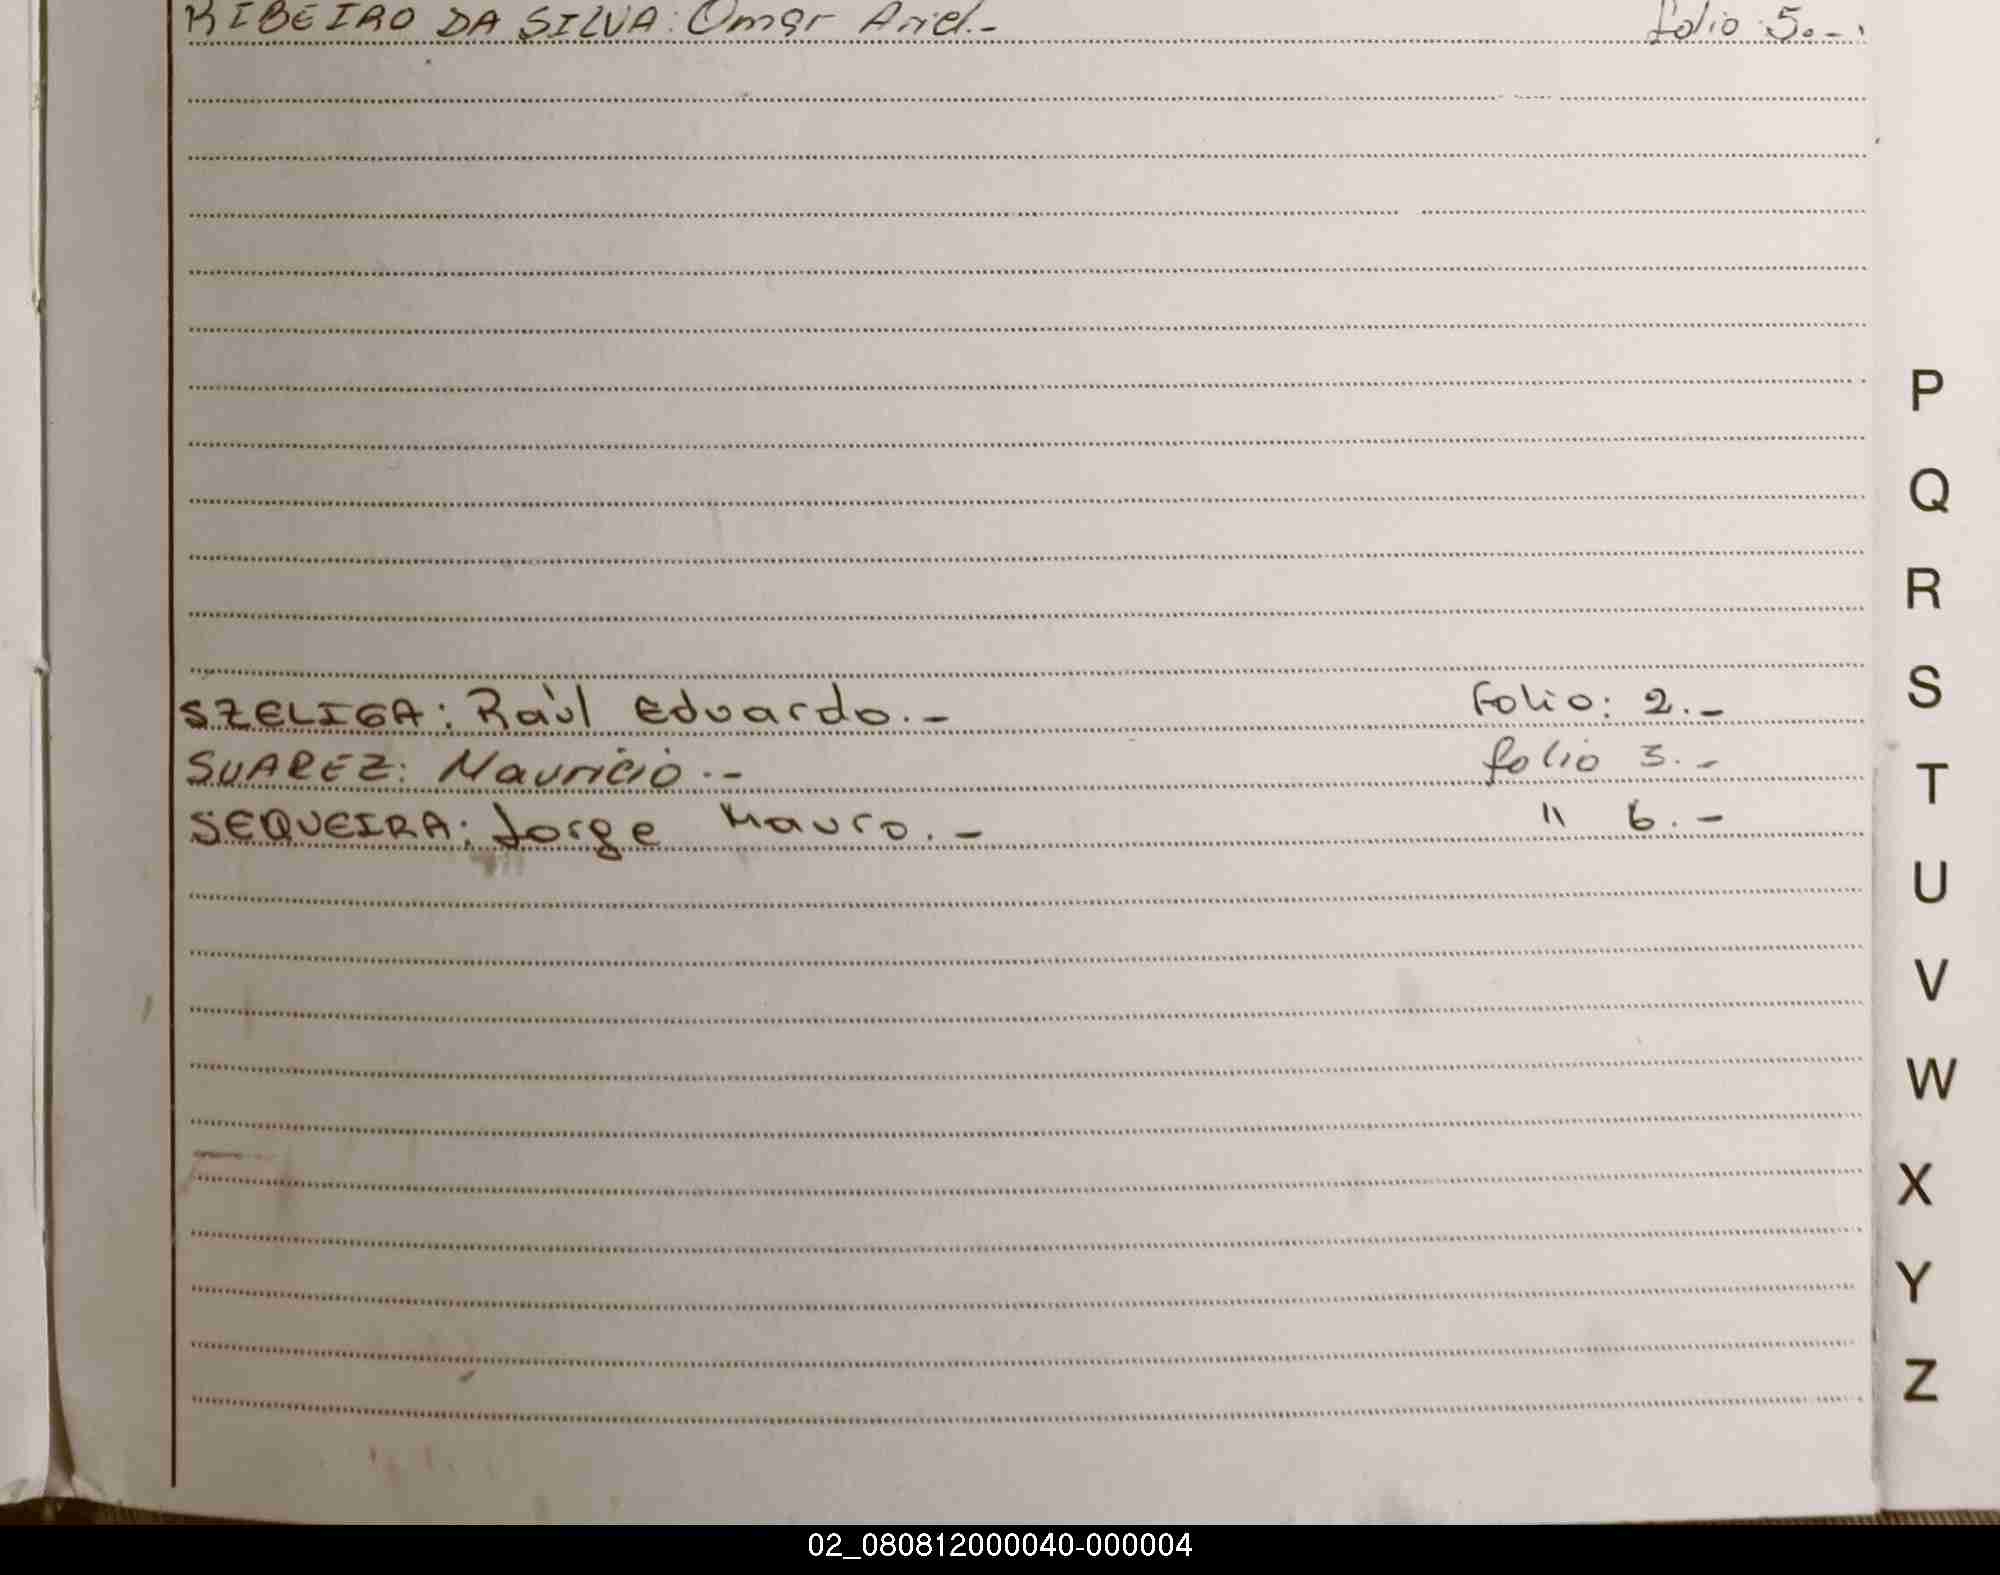 RIBEIRO DA SILVA: Omar Ariel.- folio 5.-
SZELIGA: Raúl Eduardo.- Folio: 2.-
SUAREZ: Mauricio.- folio 3.-
SEQUEIRA: Jorge Mauro.- " 6.-
P
Q
R
S
T
U
V
W
X
Y
Z
02_080812000040-000004